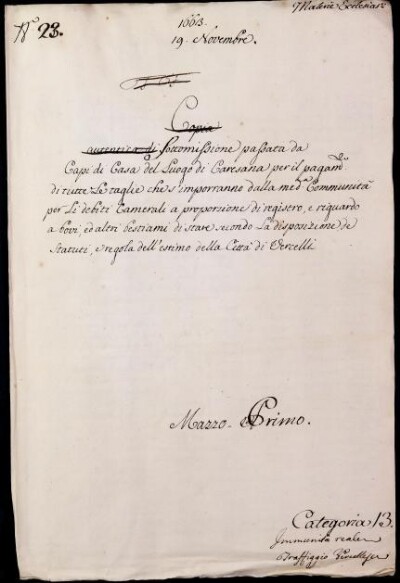 Materie Ecclesias.e
N.o 23.
1663.
19. Novembre.
Copia
autentica di Sottomissione passata da
Capi di Casa del Luogo di Caresana per il pagam.to
di tutte Le taglie che s'imporranno dalla med.ma Communità
per Li debiti Camerali a proporzione di registro, e riguardo
a bovi, ed altri bestiami di stare secondo La disposizione de
Statuti, e regola dell'estimo della Città di Vercelli
Mazzo Primo.
Categoria 13.
Immunità reale